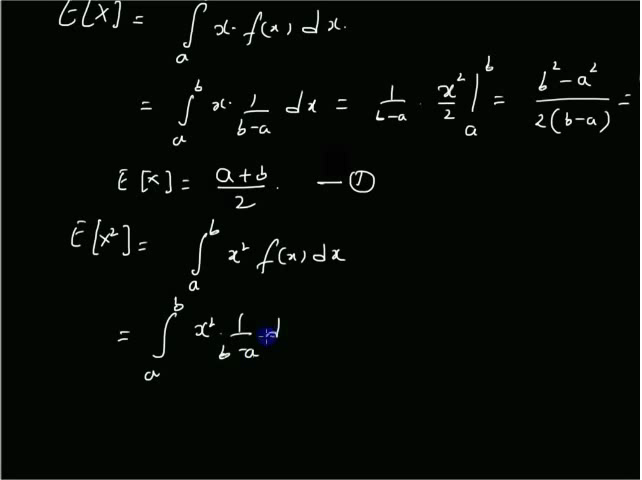 E[X] = ∫ₐ x· f(x) dx.
= ∫ₐᵇ x· 1/(b-a) dx = 1/(b-a) · x²/2 |ₐᵇ = (b²-a²)/(2(b-a)) =
E[x] = (a+b)/2 . — ①
E[X²] = ∫ₐᵇ x² f(x) dx
= ∫ₐᵇ x² · 1/(b-a) d